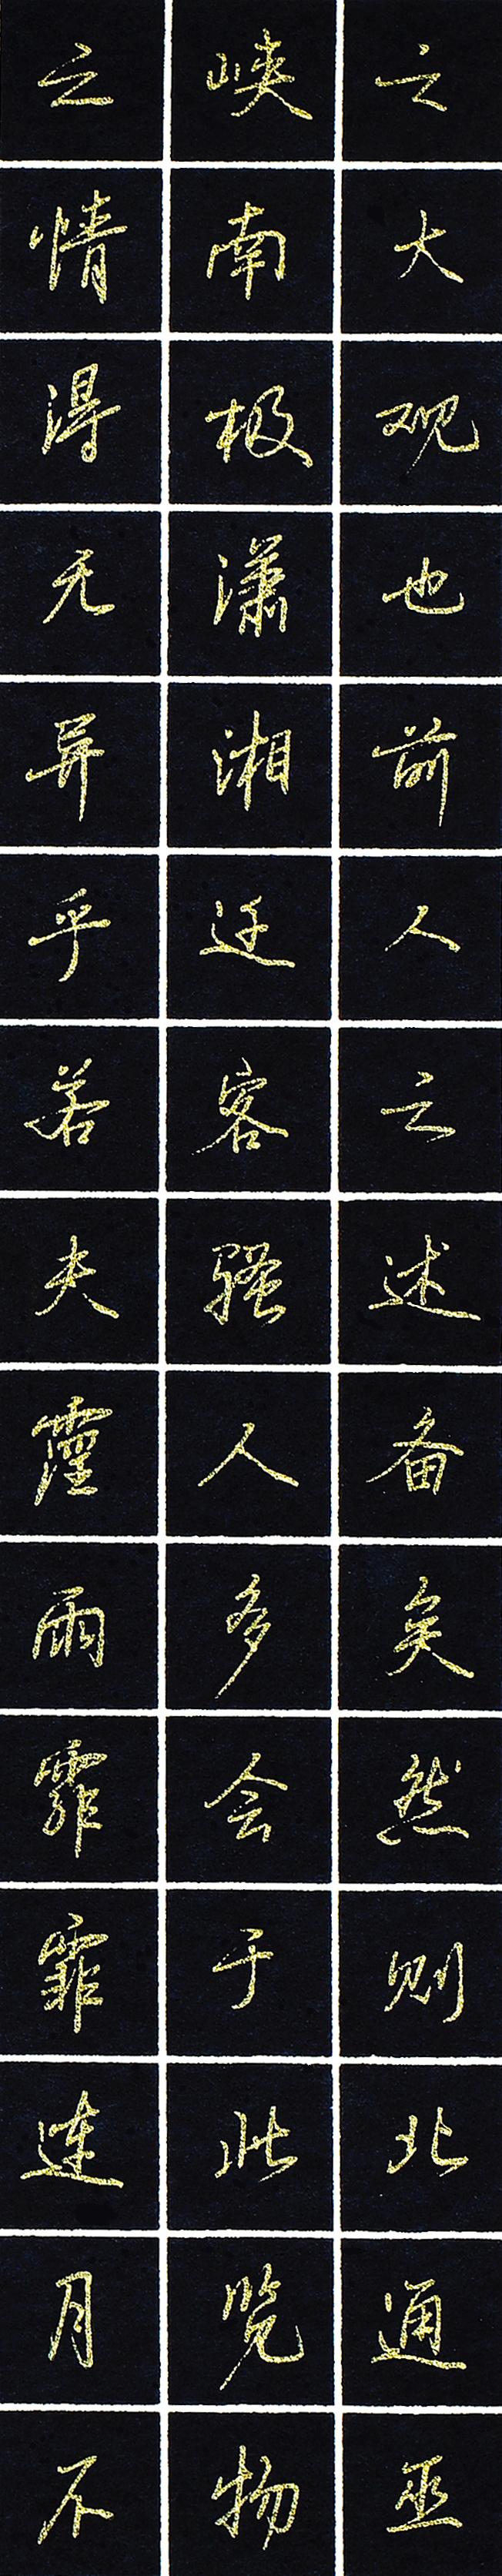 之大观也前人之述备矣然则北通巫
峡南极潇湘迁客骚人多会于此览物
之情得无异乎若夫霪雨霏霏连月不